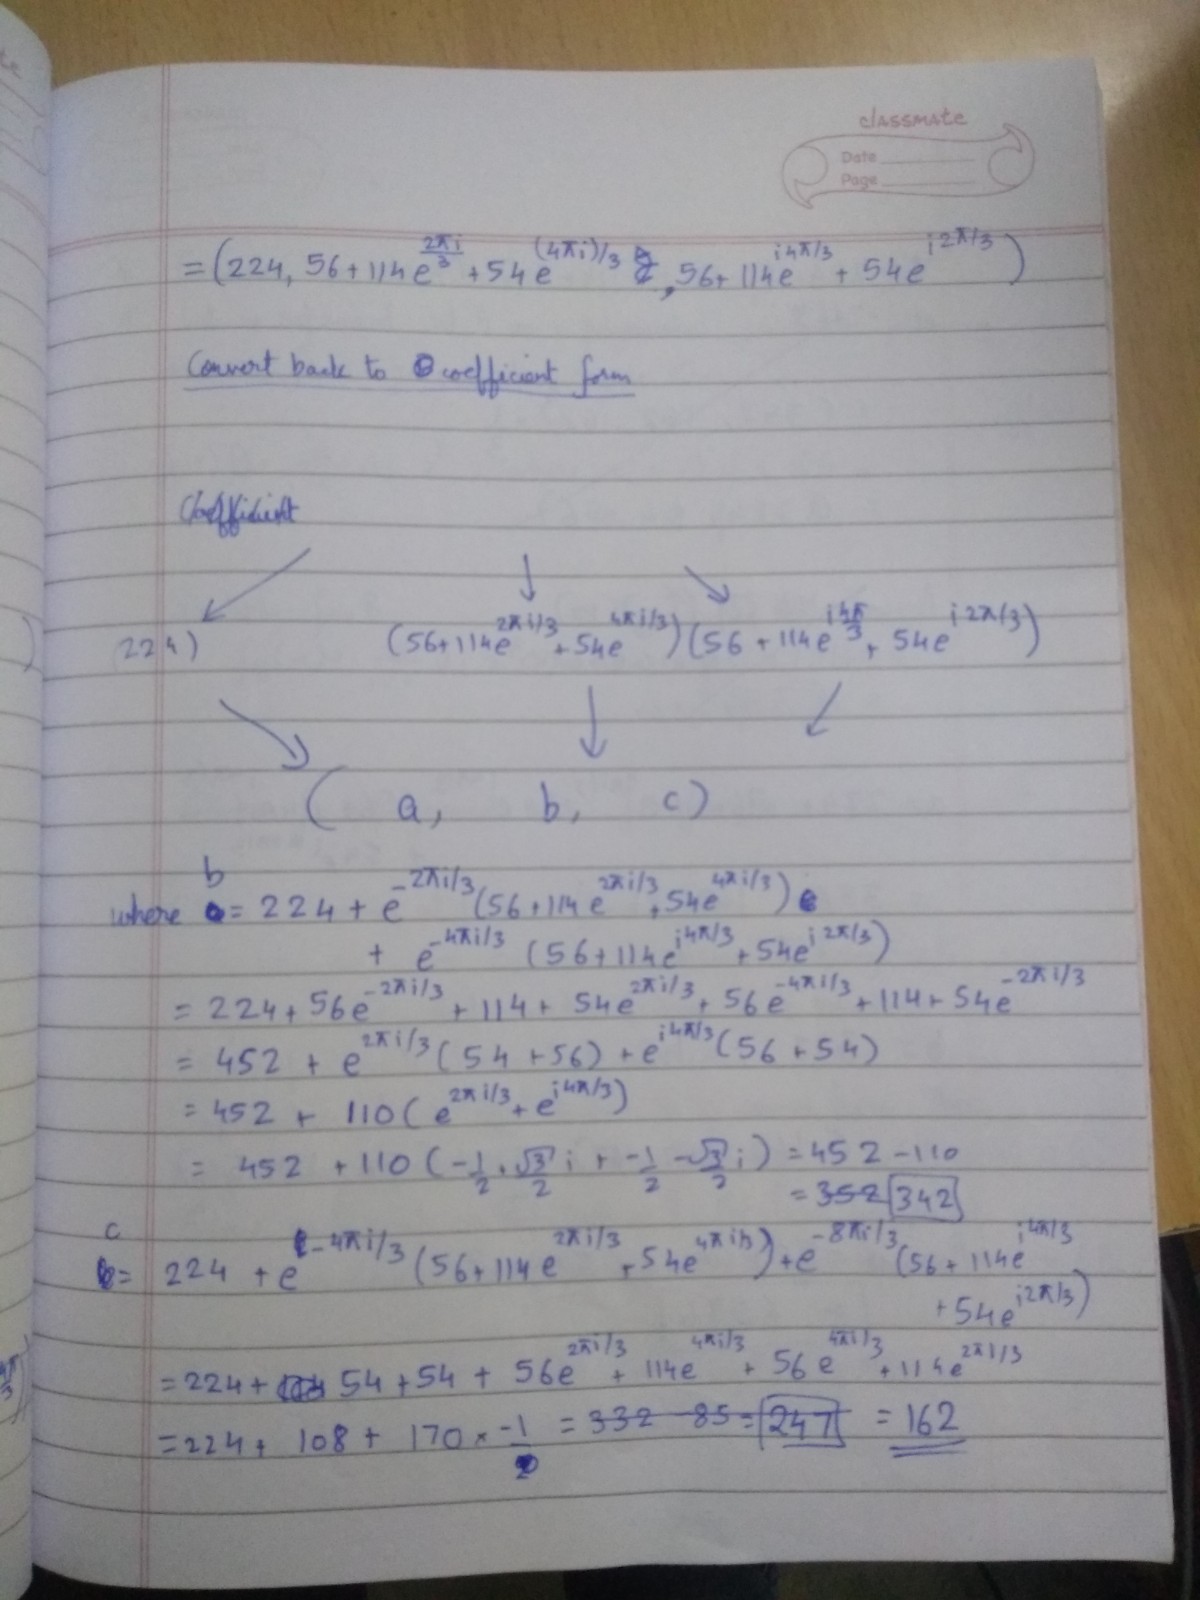 classmate
Date
Page
= (224, 56+114e^{2πi/3} + 54e^{(4πi)/3}, 56+114e^{i4π/3} + 54e^{i2π/3})
Convert back to coefficient form
Coefficient
224) (56+114e^{2πi/3} + 54e^{4πi/3}) (56 + 114e^{i4π/3} + 54e^{i2π/3})
( a, b, c)
where b = 224 + e^{-2πi/3} (56+114e^{2πi/3} + 54e^{4πi/3})
+ e^{-4πi/3} (56+114e^{i4π/3} + 54e^{i2π/3})
= 224 + 56e^{-2πi/3} + 114 + 54e^{2πi/3} + 56e^{-4πi/3} + 114 + 54e^{-2πi/3}
= 452 + e^{2πi/3} (54+56) + e^{i4π/3} (56+54)
= 452 + 110 (e^{2πi/3} + e^{i4π/3})
= 452 + 110 (-1/2 + √3/2 i + -1/2 - √3/2 i) = 452 - 110
= 352 342
c = 224 + e^{-4πi/3} (56+114e^{2πi/3} + 54e^{4πi/3}) + e^{-8πi/3} (56+114e^{i4π/3}
+ 54e^{i2π/3})
= 224 + 54 + 54 + 56e^{2πi/3} + 114e^{4πi/3} + 56e^{4πi/3} + 114e^{2πi/3}
= 224 + 108 + 170 × -1 = 332 - 85 = 247 = 162